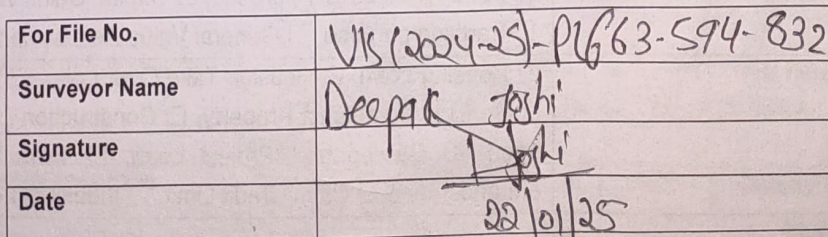 For File No. VIS(2024-25)-PL663-594-832
Surveyor Name Deepak Joshi
Signature Joshi
Date 22/01/25